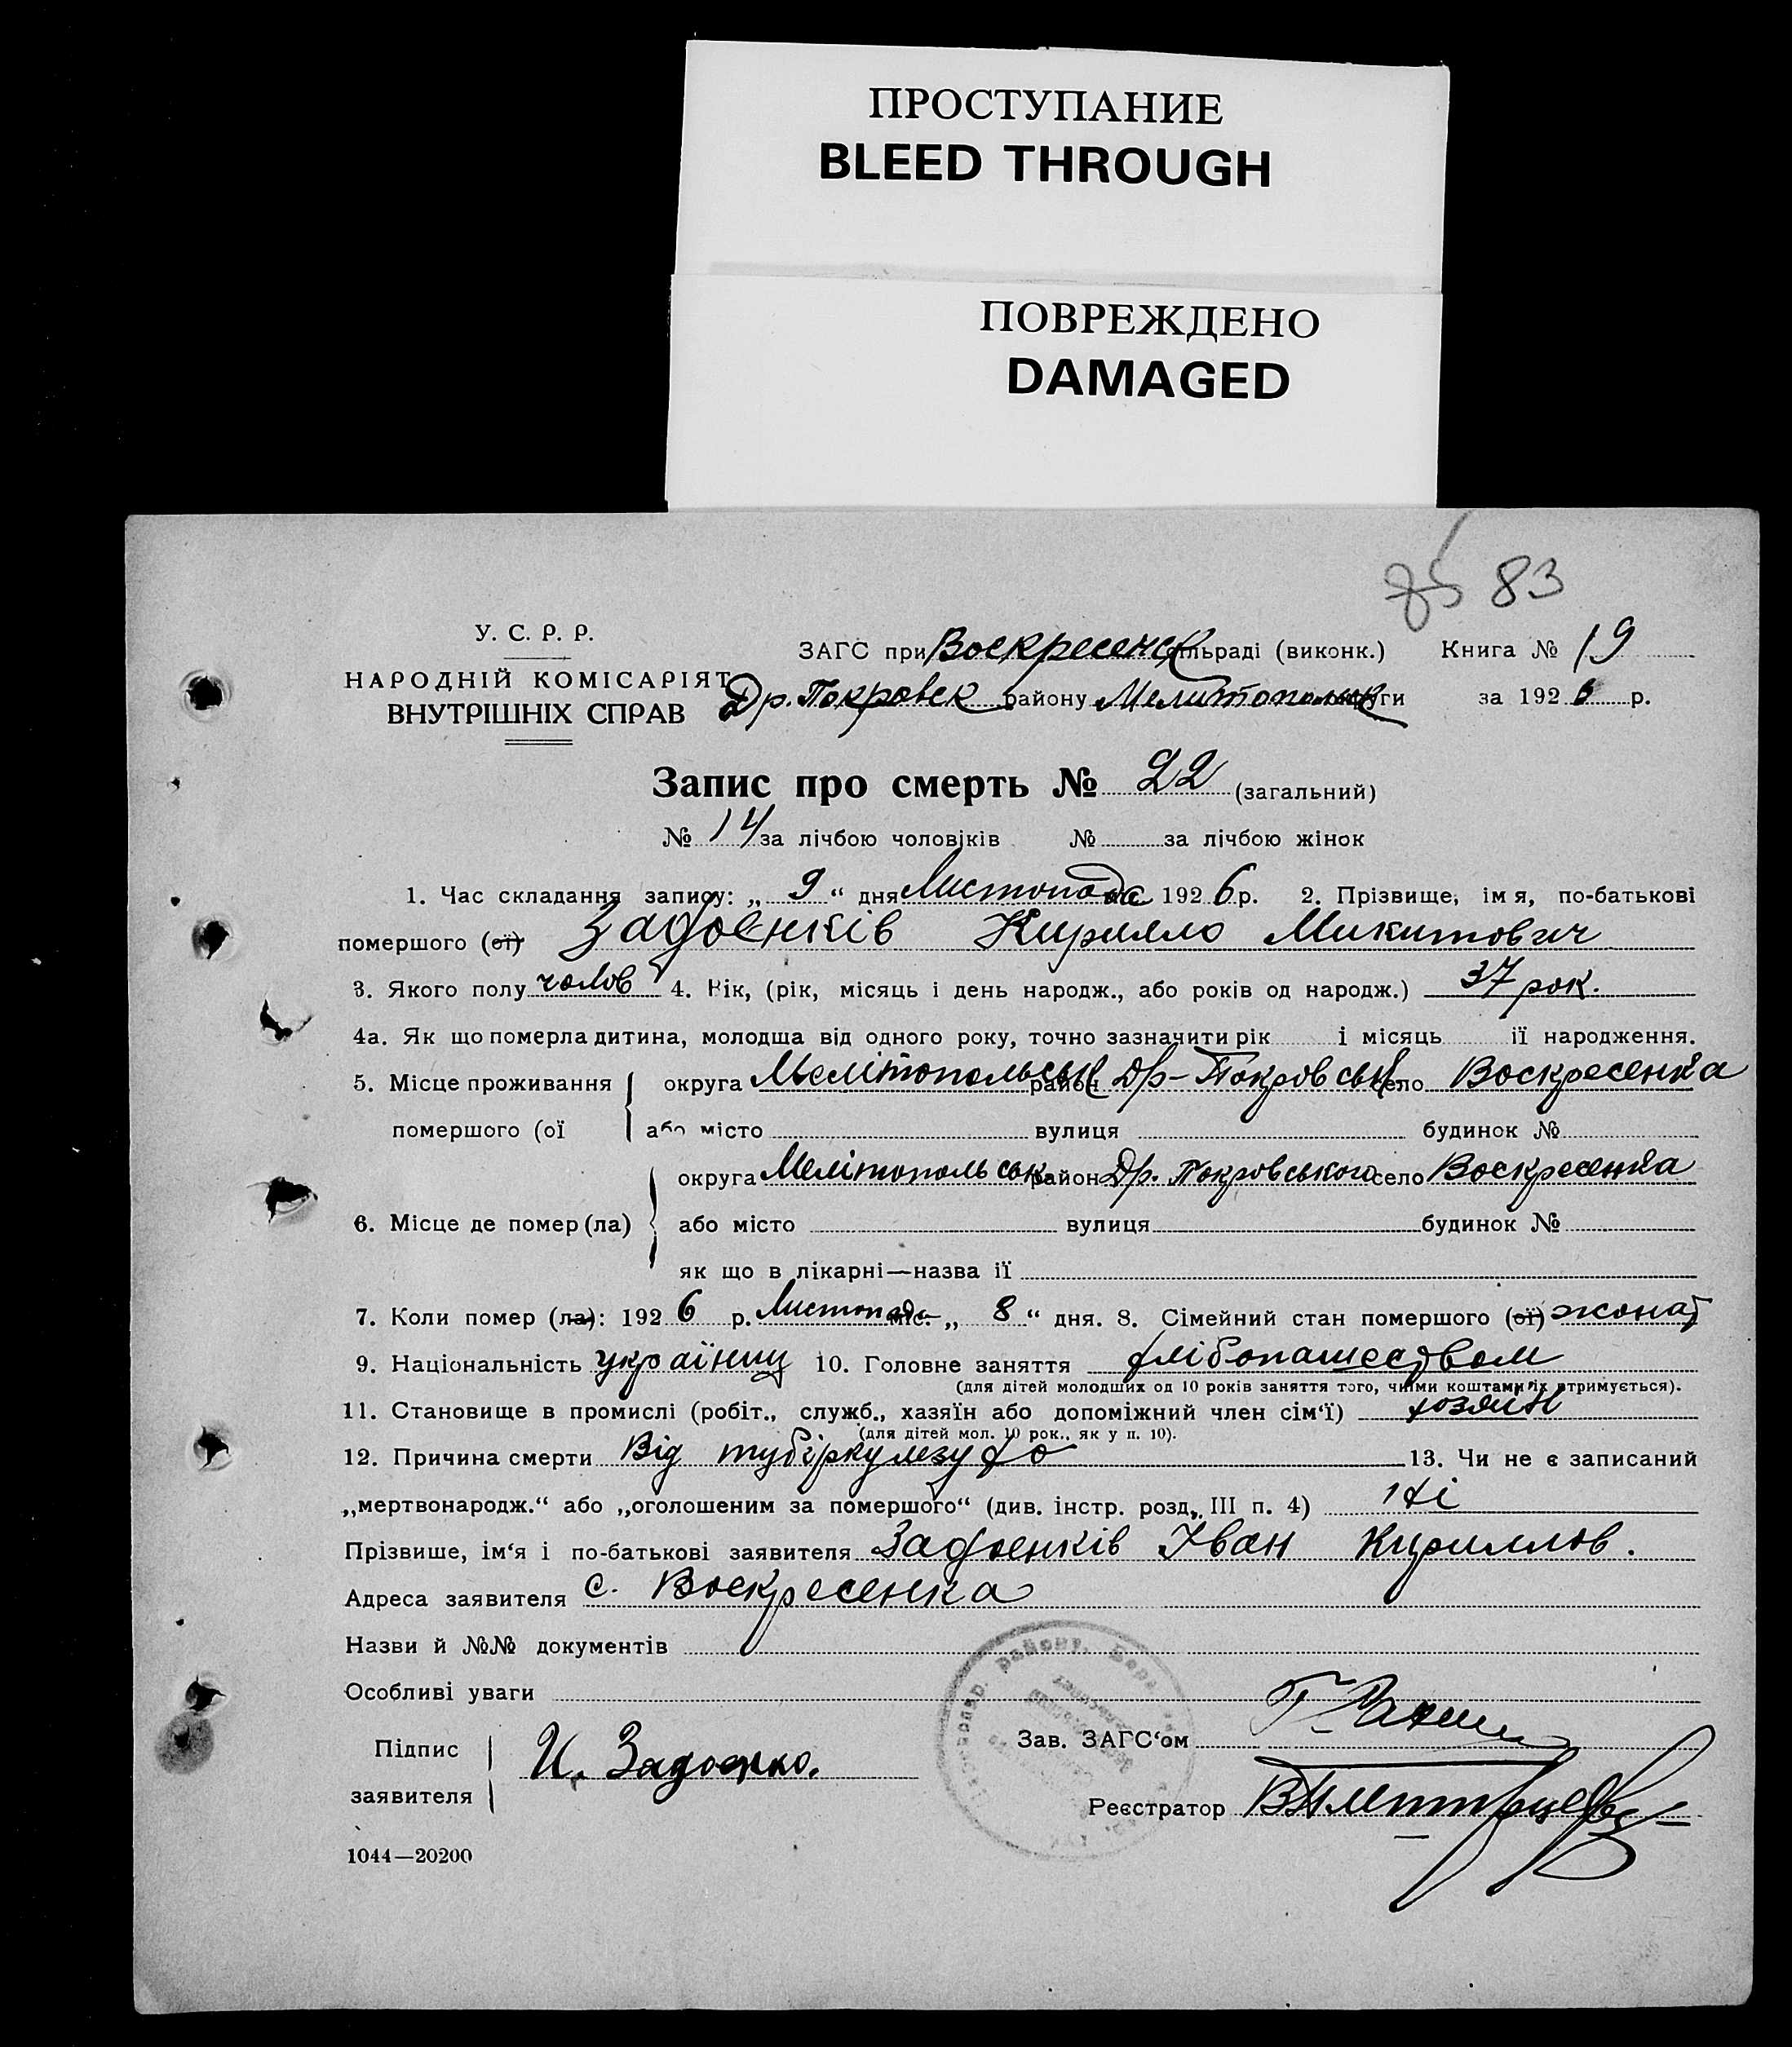 ПРОСТУПАНИЕ
BLEED THROUGH
ПОВРЕЖДЕНО
DAMAGED
83
У. С. Р. Р.
НАРОДНІЙ КОМІСАРІЯТ
ВНУТРІШНІХ СПРАВ
ЗАГС при Воскресенск сільраді (виконк.) Книга № 19
Др. Покровск району Мелитопольк округи за 1926 р.
Запис про смерть № 22 (загальний)
№ 14 за лічбою чоловіків № за лічбою жінок
1. Час складання запису: „ 9 “ дня Листопада 1926 р. 2. Прізвище, ім я, по-батькові
помершого (ої) Задоєнків Кирилло Микитович
3. Якого полу чолов 4. Вік, (рік, місяць і день народж., або років од народж.) 37 рок.
4а. Як що померла дитина, молодша від одного року, точно зазначити рік і місяць її народження.
5. Місце проживання округа Мелітопольськ район Др-Покровськ село Воскресенка
помершого (ої або місто вулиця будинок №
округа Мелітопольськ район Др. Покровського село Воскресенка
6. Місце де помер (ла) або місто вулиця будинок №
як що в лікарні—назва її
7. Коли помер (ла): 1926 р. Листопад міс. „ 8 “ дня. 8. Сімейний стан помершого (ої) жонат
9. Національність українец 10. Головне заняття хлібопашеством
(для дітей молодших од 10 років заняття того, чиїми коштами їх втримується).
11. Становище в промислі (робіт., служб., хазяїн або допоміжний член сім'ї) хозяїн
(для дітей мол. 10 рок., як у п. 10).
12. Причина смерти Від 13. Чи не є записаний
„мертвонародж.“ або „оголошеним за помершого“ (див. інстр. розд. III п. 4) ні
Прізвище, ім'я і по-батькові заявителя Задоєнків Іван Кириллов.
Адреса заявителя с. Воскресенка
Назви й №№ документів
Особливі уваги
Підпис
заявителя И.
Зав. ЗАГС'ом
Реєстратор
1044—20200